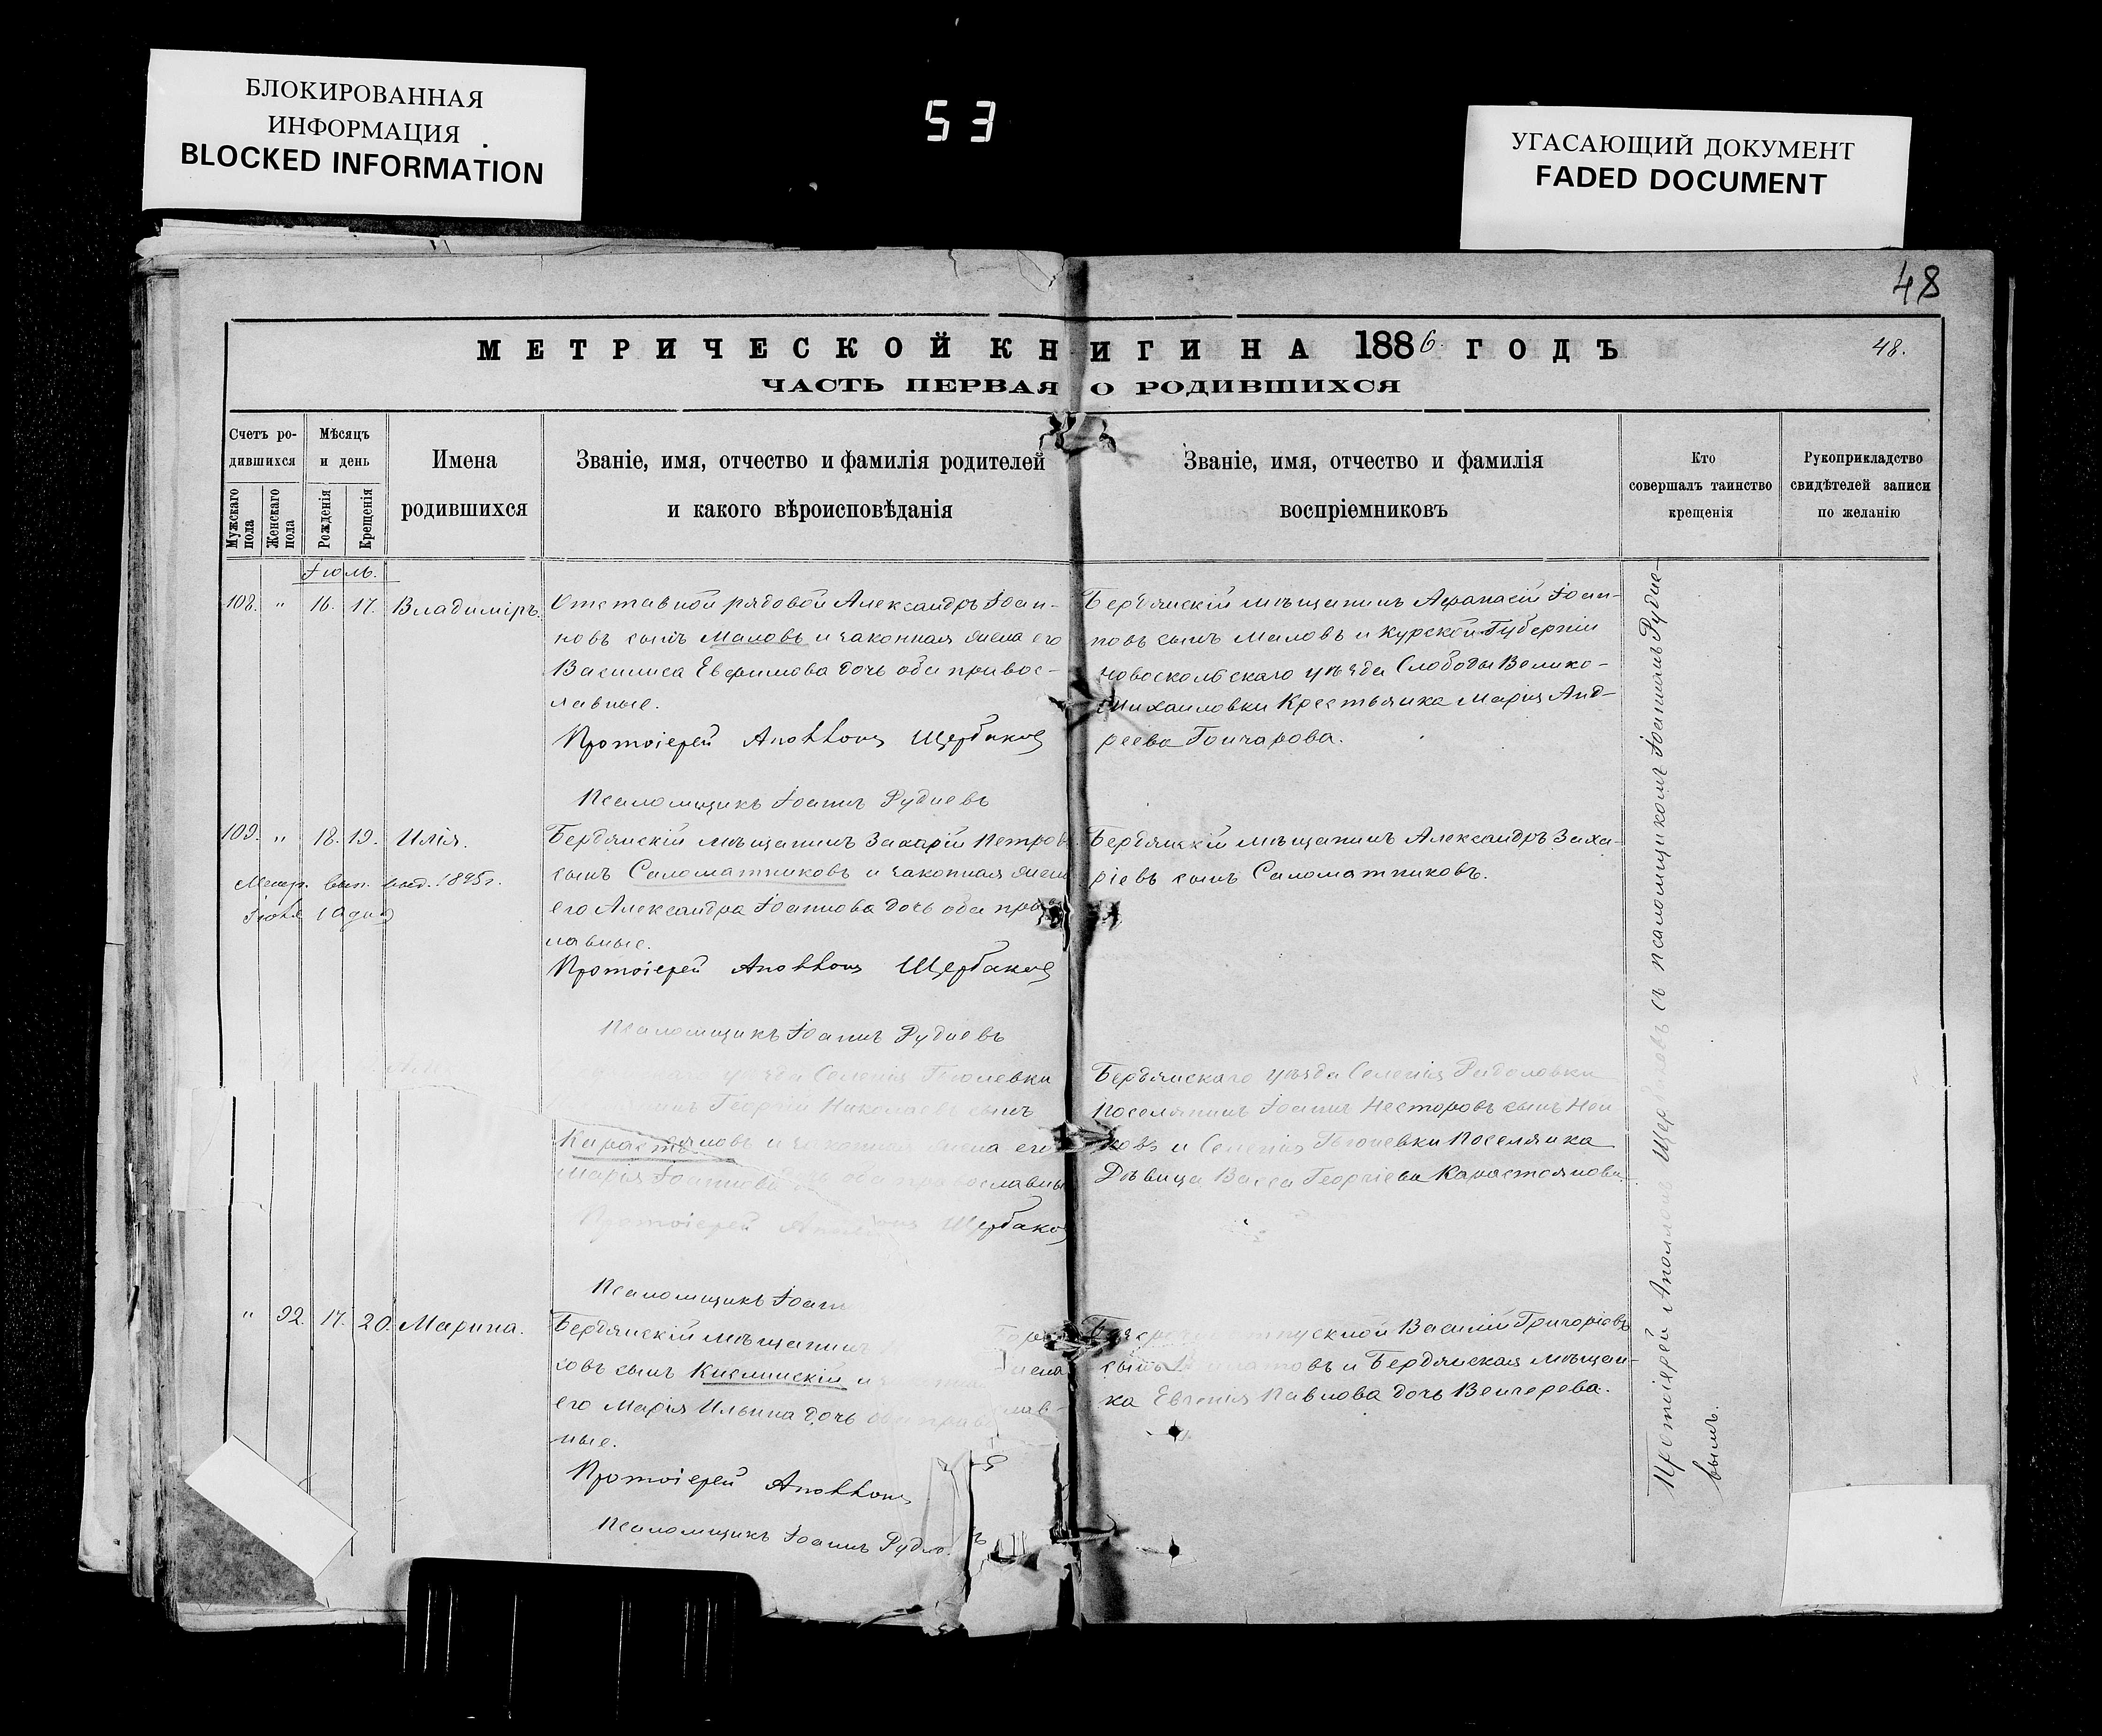 БЛОКИРОВАННАЯ
ИНФОРМАЦИЯ
BLOCKED INFORMATION
53
УГАСАЮЩИЙ ДОКУМЕНТ
FADED DOCUMENT
48
МЕТРИЧЕСКОЙ КНИГИ НА 1886 ГОДЪ
48.
ЧАСТЬ ПЕРВАЯ О РОДИВШИХСЯ
Счетъ ро-
дившихся
Мужскаго пола
Женскаго пола
Мѣсяцъ
и день
Рожденія
Крещенія
Имена
родившихся
Званіе, имя, отчество и фамилія родителей
и какого вѣроисповѣданія
Званіе, имя, отчество и фамилія
воспріемниковъ
Кто
совершалъ таинство
крещенія
Рукоприкладство
свидѣтелей записи
по желанію
Іюль.
108. " 16. 17. Владиміръ.
Отставной рядовой Александръ Іоан-
новъ сынъ Маловъ и законная жена его
Василиса Евфимова дочь оба правос-
лавные.
Протоіерей Аполлонъ Щербаковъ
Псаломщикъ Іоаннъ Рудневъ
Бердянскій мѣщанинъ Афанасій Іоан-
новъ сынъ Маловъ и Курской Губерніи
Новооскольскаго уѣзда Слободы Велико-
Михаиловки Крестьянка Марія Анд-
реева Гончарова.
109. " 18. 19. Илія.
Метр. вып. выд. 1895 г.
Бердянскій мѣщанинъ Захарій Петровъ
сынъ Саломатниковъ и законная жена
его Александра Іоаннова дочь оба прав
лавные.
Протоіерей Аполлонъ Щербаковъ
Псаломщикъ Іоаннъ Рудневъ
Бердянскій мѣщанинъ Александръ Заха-
ріевъ сынъ Саломатниковъ.
уѣзда Селенія
Георгій Николаевъ сынъ
и законная жена его
Марія Іоаннова оба православны
Протоіерей Щербаков
Псаломщикъ Іоанн
Бердянскаго уѣзда Селенія
Поселянинъ Іоаннъ Несторовъ сынъ
и Селенія Поселянка
Дѣвица Васса Георгіева Карастоянова.
" 92. 17. 20. Марина.
Бердянскій мѣщанинъ
ковъ сынъ и жена
его Марія Ильина дочь оба прав лав-
ные.
Протоіерей Аполлонъ
Псаломщикъ Іоаннъ Рудне
Василій Григоріевъ
сынъ и Бердянская мѣщан-
ка Евгенія Павлова дочь Венгерева.
Протоіерей Аполлонъ Щербаковъ съ псаломщикомъ Іоанномъ Рудне-
вымъ.